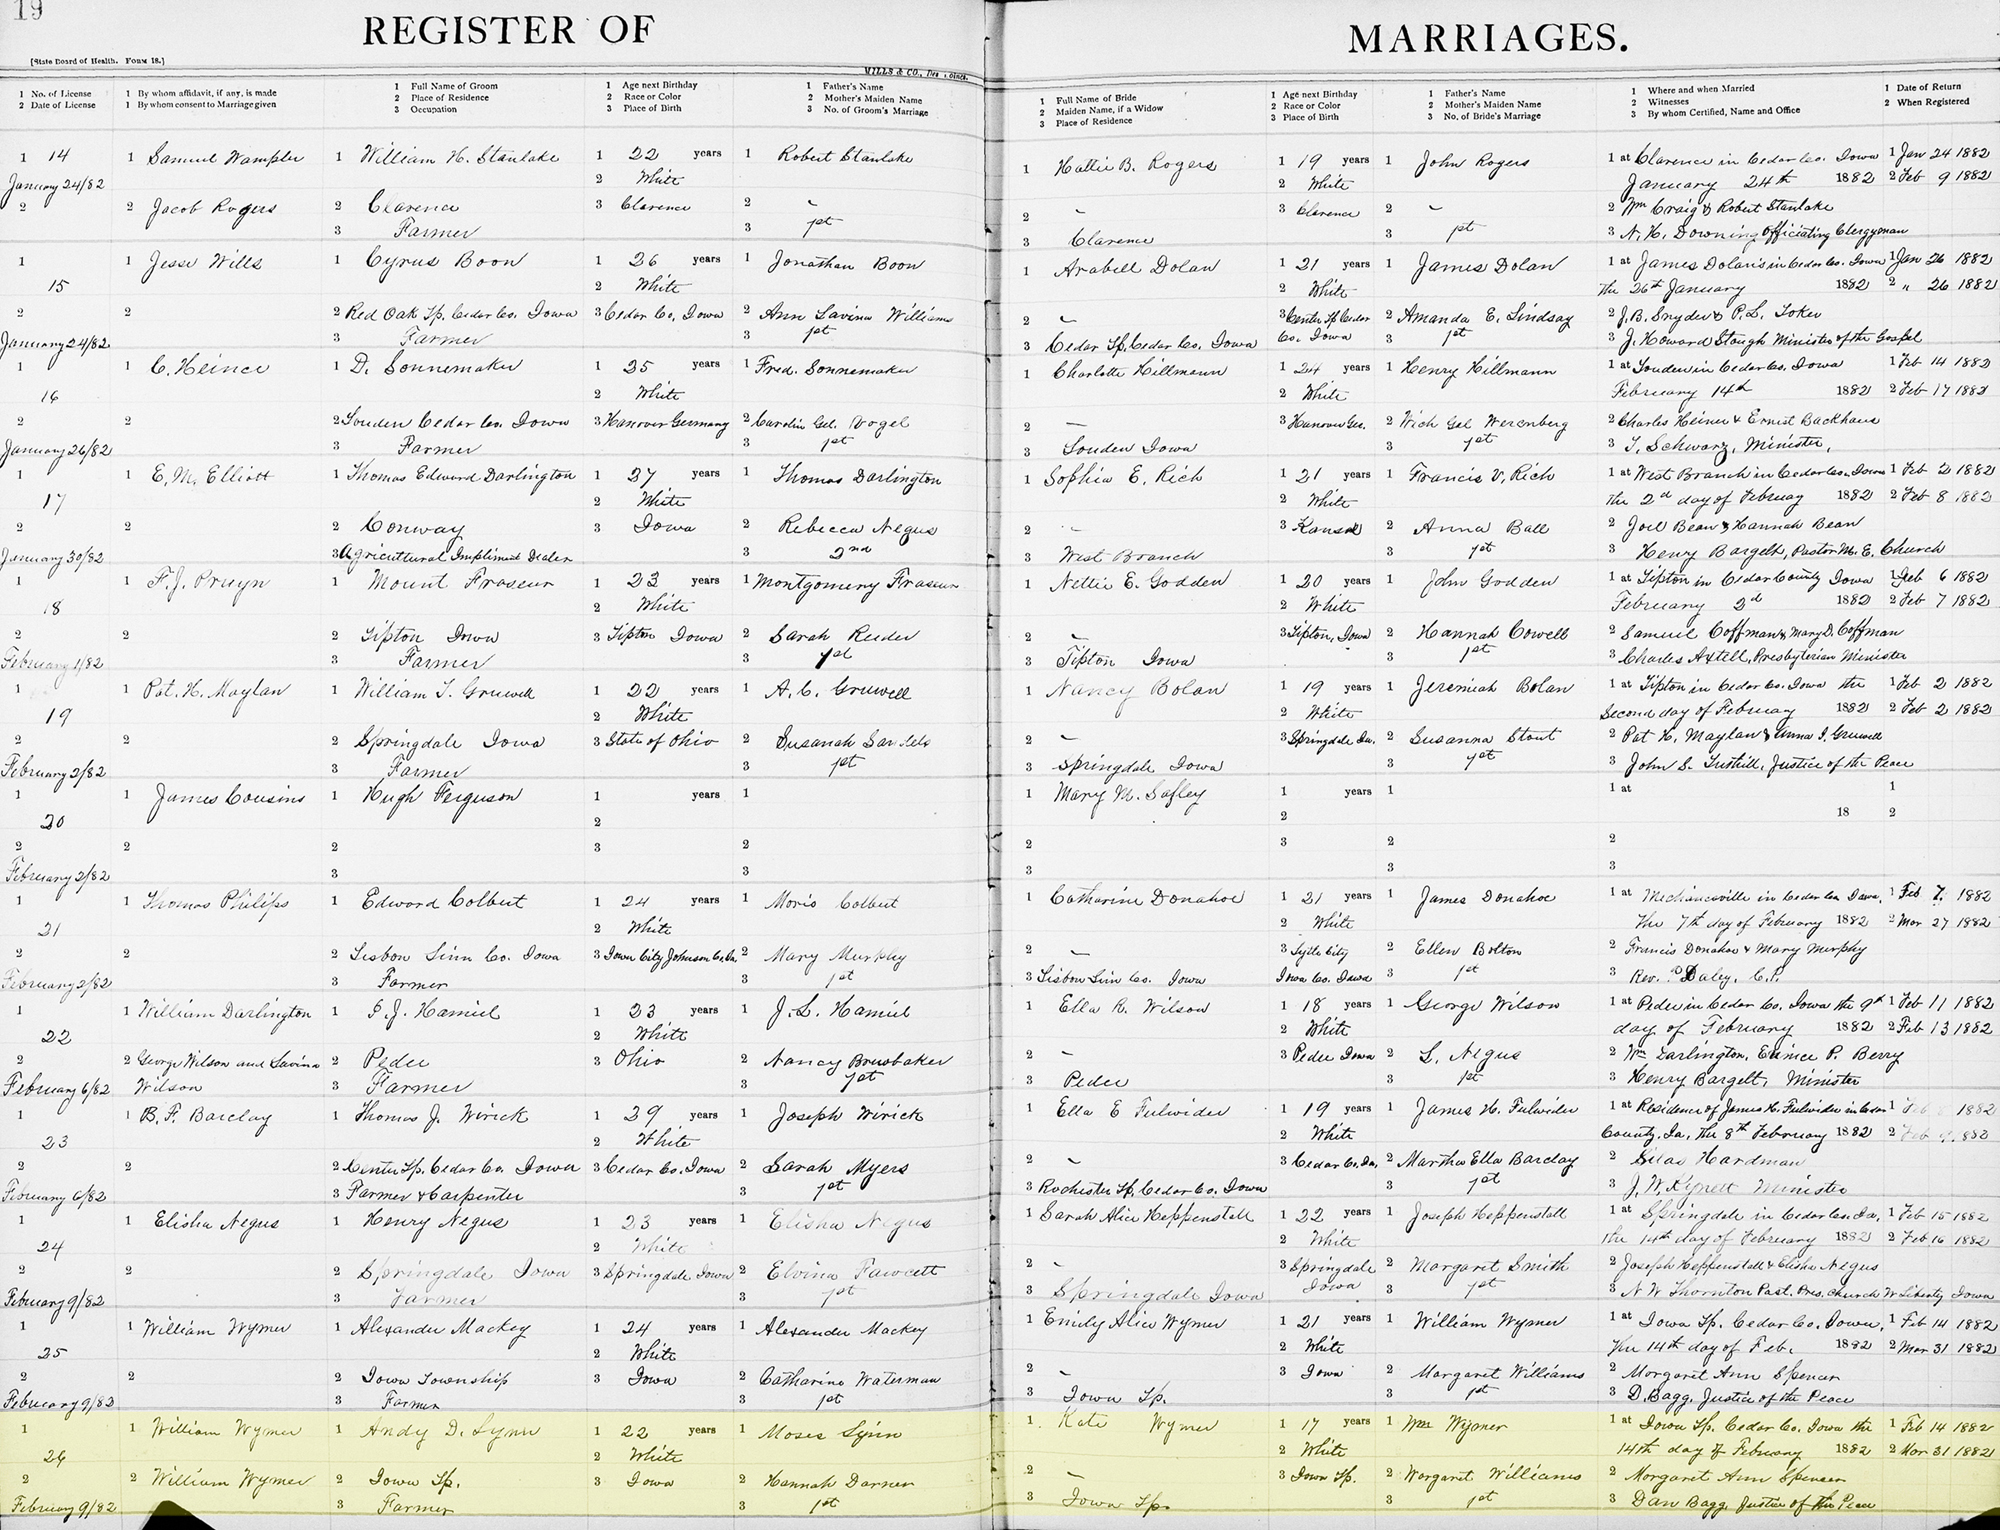 19
REGISTER OF MARRIAGES.
[State Board of Health. Form 18.]
MILLS & CO., Des
1 No. of License
2 Date of License
1 By whom affidavit, if any, is made
1 By whom consent to Marriage given
1 Full Name of Groom
2 Place of Residence
3 Occupation
1 Age next Birthday
2 Race or Color
3 Place of Birth
1 Father's Name
2 Mother's Maiden Name
3 No. of Groom's Marriage
1 Full Name of Bride
2 Maiden Name, if a Widow
3 Place of Residence
1 Age next Birthday
2 Race or Color
3 Place of Birth
1 Father's Name
2 Mother's Maiden Name
3 No. of Bride's Marriage
1 Where and when Married
2 Witnesses
3 By whom Certified, Name and Office
1 Date of Return
2 When Registered
1 14
2 January 24/82
1 Samuel Wampler
2 Jacob Rogers
1 William H. Stanlake
2 Clarence
3 Farmer
1 22 years
2 White
3 Clarence
1 Robert Stanlake
2 -
3 1st
1 Hattie B. Rogers
2 -
3 Clarence
1 19 years
2 White
3 Clarence
1 John Rogers
2 -
3 1st
1 at Clarence in Cedar Co. Iowa
January 24th 1882
2 Wm Craig & Robert Stanlake
3 N. H. Downing Officiating Clergyman
1 Jan 24 1882
2 Feb 9 1882
1 15
2 January 24/82
1 Jesse Wills
2
1 Cyrus Boon
2 Red Oak Tp. Cedar Co. Iowa
3 Farmer
1 26 years
2 White
3 Cedar Co. Iowa
1 Jonathan Boon
2 Ann Lavina Williams
3 1st
1 Arabell Dolan
2 -
3 Cedar Tp. Cedar Co. Iowa
1 21 years
2 White
3 Center Tp Cedar
Co. Iowa
1 James Dolan
2 Amanda E. Lindsay
3 1st
1 at James Dolan's in Cedar Co. Iowa
the 26th January 1882
2 J. B. Snyder & P. L. Yoker
3 J. Howard Stough Minister of the Gospel
1 Jan 26 1882
2 " 26 1882
1 16
2 January 26/82
1 C. Heince
2
1 D. Sonnemaker
2 Louden Cedar Co. Iowa
3 Farmer
1 25 years
2 White
3 Hanover Germany
1 Fred. Sonnemaker
2 Carolin Gel. Vogel
3 1st
1 Charlotte Hillmann
2 -
3 Louden Iowa
1 24 years
2 White
3 Hanover Ger.
1 Henry Hillmann
2 Wich Gel Werenberg
3 1st
1 at Louden in Cedar Co. Iowa
February 14th 1882
2 Charles Heiner & Ernst Backhaus
3 T. Schwarz, Minister,
1 Feb 14 1882
2 Feb 17 1882
1 17
2 January 30/82
1 E. M. Elliott
2
1 Thomas Edward Darlington
2 Conway
3 Agricultural Impliment Dealer
1 27 years
2 White
3 Iowa
1 Thomas Darlington
2 Rebecca Negus
3 2nd
1 Sophia E. Rich
2 -
3 West Branch
1 21 years
2 White
3 Kansas
1 Francis V. Rich
2 Anna Ball
3 1st
1 at West Branch in Cedar Co. Iowa
the 2d day of February 1882
2 Joel Bean & Hannah Bean
3 Henry Bargelt, Pastor M. E. Church
1 Feb 2 1882
2 Feb 8 1882
1 18
2 February 1/82
1 F. J. Pruyn
2
1 Mount Fraseur
2 Tipton Iowa
3 Farmer
1 23 years
2 White
3 Tipton Iowa
1 Montgomery Fraseur
2 Sarah Reeder
3 1st
1 Nettie E. Godden
2 -
3 Tipton Iowa
1 20 years
2 White
3 Tipton, Iowa
1 John Godden
2 Hannah Cowell
3 1st
1 at Tipton in Cedar County Iowa
February 2d 1882
2 Samuel Coffman & Mary D. Coffman
3 Charles Axtell, Presbyterian Minister
1 Feb 6 1882
2 Feb 7 1882
1 19
2 February 2/82
1 Pat. H. Maylan
2
1 William T. Gruwell
2 Springdale Iowa
3 Farmer
1 22 years
2 White
3 State of Ohio
1 A. C. Gruwell
2 Susanah
3 1st
1 Nancy Bolan
2 -
3 Springdale Iowa
1 19 years
2 White
3 Springdale Ia.
1 Jeremiah Bolan
2 Susanna Stout
3 1st
1 at Tipton in Cedar Co. Iowa the
Second day of February 1882
2 Pat H. Maylan & Anna I. Gruwell
3 John S. Tuthill, Justice of the Peace
1 Feb 2 1882
2 Feb 2 1882
1 20
2 February 2/82
1 James Cousins
2
1 Hugh Ferguson
2
3
1 years
2
3
1
2
3
1 Mary M. Safley
2
3
1 years
2
3
1
2
3
1 at
18
2
3
1
2
1 21
2 February 2/82
1 Thomas Philips
2
1 Edward Colbert
2 Lisbon Linn Co. Iowa
3 Farmer
1 24 years
2 White
3 Iowa City Johnson Co. Ia.
1 Moris Colbert
2 Mary Murphy
3 1st
1 Catharine Donahoe
2 -
3 Lisbon Linn Co. Iowa
1 21 years
2 White
3 City
Iowa Co. Iowa
1 James Donahoe
2 Ellen Bolton
3 1st
1 at Mechanicsville in Cedar Co. Iowa,
the 7th day of February 1882
2 Francis Donahoe & Mary Murphy
3 Rev. P Daley, C. P.
1 Feb 7. 1882
2 Mar 27 1882
1 22
2 February 6/82
1 William Darlington
2 George Wilson and Lavina
Wilson
1 I. J. Hamiel
2 Pedee
3 Farmer
1 23 years
2 White
3 Ohio
1 J. L. Hamiel
2 Nancy Brusbaker
3 1st
1 Ella R. Wilson
2 -
3 Pedee
1 18 years
2 White
3 Pedee Iowa
1 George Wilson
2 L. Negus
3 1st
1 at Pedee in Cedar Co. Iowa the 9th
day of February 1882
2 Wm Darlington, Eunice P. Berry
3 Henry Bargelt, Minister
1 Feb 11 1882
2 Feb 13 1882
1 23
2 February 6/82
1 B. F. Barclay
2
1 Thomas J. Wirick
2 Center Tp. Cedar Co. Iowa
3 Farmer & Carpenter
1 29 years
2 White
3 Cedar Co. Iowa
1 Joseph Wirick
2 Sarah Myers
3 1st
1 Ella E Fulwider
2 -
3 Rochester Tp. Cedar Co. Iowa
1 19 years
2 White
3 Cedar Co. Ia.
1 James H. Fulwider
2 Martha Ella Barclay
3 1st
1 at Residence of James H. Fulwider in Cedar
County, Ia, the 8th February 1882
2 Silas Hardman
3 J. W. Kynett Minister
1 Feb 1882
2 Feb 1882
1 24
2 February 9/82
1 Elisha Negus
2
1 Henry Negus
2 Springdale Iowa
3 Farmer
1 23 years
2 White
3 Springdale Iowa
1 Elisha Negus
2 Elvina Fawcett
3 1st
1 Sarah Alice Heppenstall
2 -
3 Springdale Iowa
1 22 years
2 White
3 Springdale
Iowa
1 Joseph Heppenstall
2 Margaret Smith
3 1st
1 at Springdale in Cedar Co. Ia,
the 14th day of February 1882
2 Joseph Heppenstall & Elisha Negus
3 N W Thornton Past. Pres. Church W Liberty Iowa
1 Feb 15 1882
2 Feb 16 1882
1 25
2 February 9/82
1 William Wymer
2
1 Alexander Mackey
2 Iowa Township
3 Farmer
1 24 years
2 White
3 Iowa
1 Alexander Mackey
2 Catharine Waterman
3 1st
1 Emily Alice Wymer
2 -
3 Iowa Tp.
1 21 years
2 White
3 Iowa
1 William Wymer
2 Margaret Williams
3 1st
1 at Iowa Tp. Cedar Co. Iowa,
the 14th day of Feb. 1882
2 Morgaret Ann Spencer
3 D. Bagg, Justice of the Peace
1 Feb 14 1882
2 Mar 31 1882
1 26
2 February 9/82
1 William Wymer
2 William Wymer
1 Andy D. Lynn
2 Iowa Tp.
3 Farmer
1 22 years
2 White
3 Iowa
1 Moses Lynn
2 Hannah Darner
3 1st
1 Kate Wymer
2 -
3 Iowa Tp.
1 17 years
2 White
3 Iowa Tp.
1 Wm Wymer
2 Margaret Williams
3 1st
1 at Iowa Tp. Cedar Co. Iowa the
14th day of February 1882
2 Morgaret Ann Spencer
3 Dan Bagg, Justice of the Peace
1 Feb 14 1882
2 Mar 31 1882